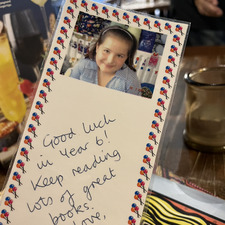 Good luck
in Year 6!
Keep reading
lots of great
books.
Love,